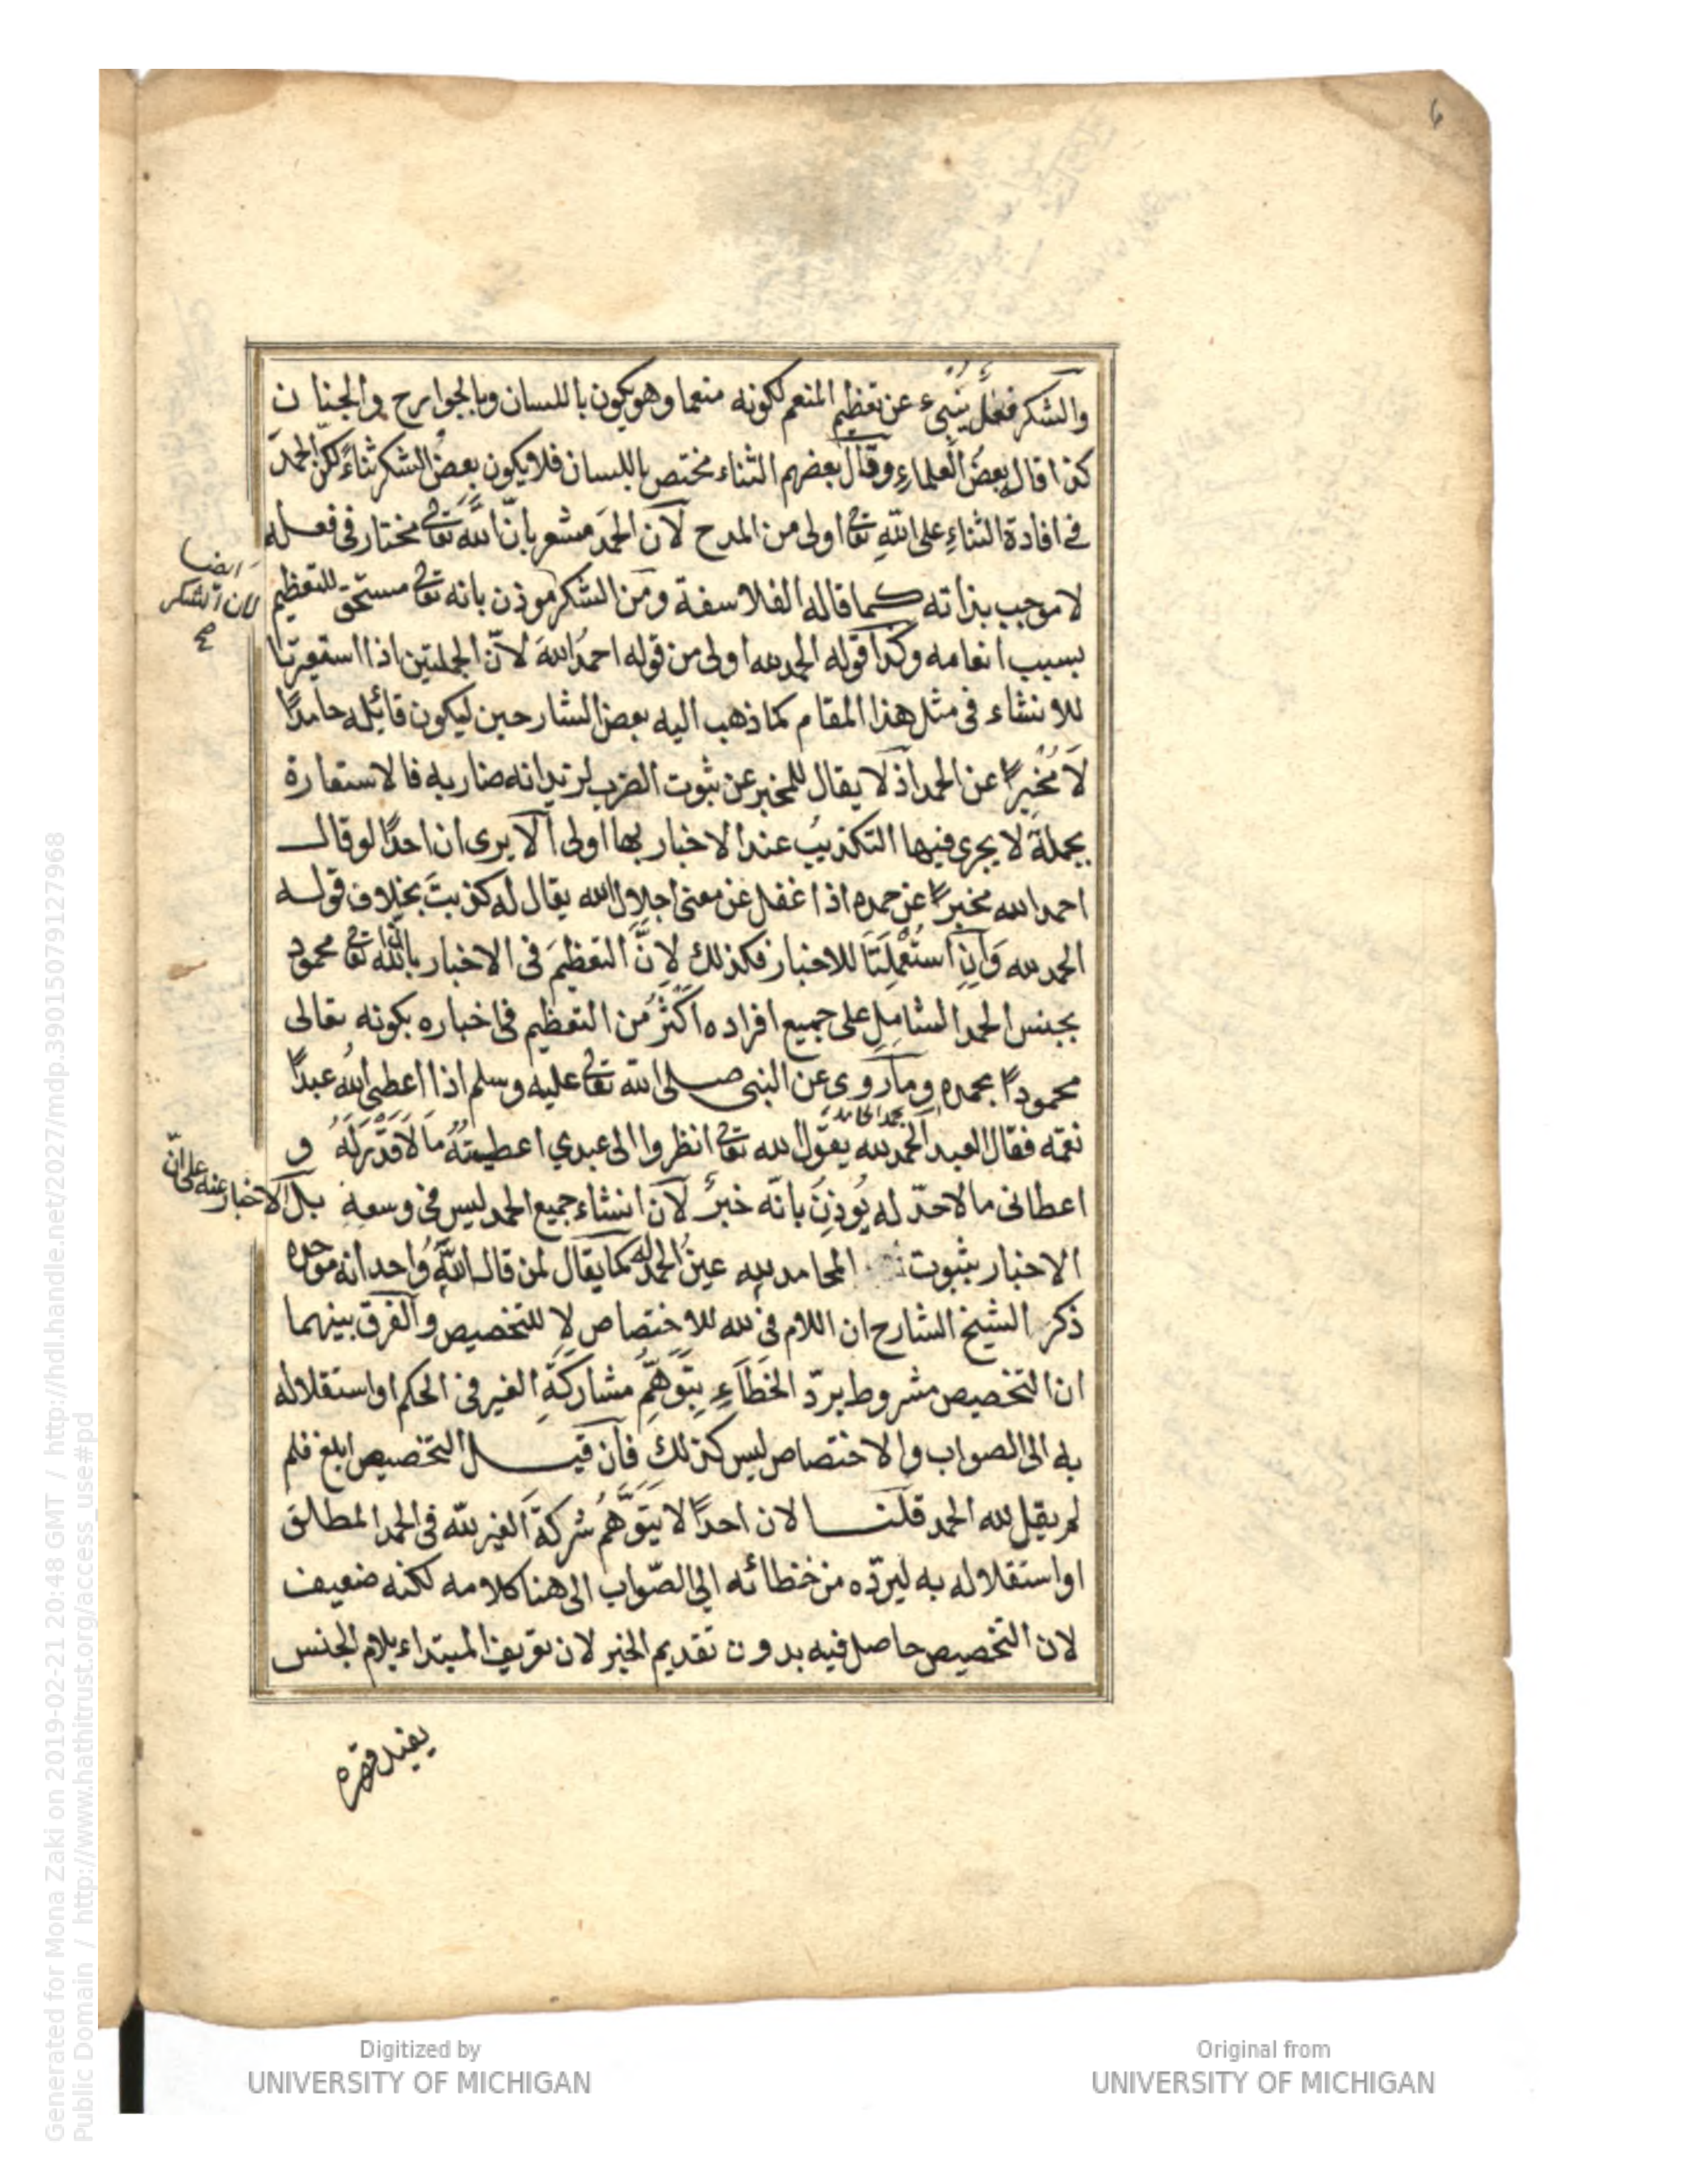 والشكر فعلٌ يُنبىء عن تعظيم المنعم لكونه منعما وهو يكون باللسان وبالجوارح والجنان
كذا قال بعضُ العلماءِ وقال بعضهم الثناء مختص باللسان فلا يكون بعضُ الشكر ثناءً لكن الحمدَ
في افادة الثناءِ على اللهِ تعا اولى من المدح لان الحمدَ مشعر بانّ اللهَ تعا مختار في فعله
لا موجب بذاته كما قاله الفلاسفة ومن الشكر موذن بانه تعا مستحق للتعظيم
ايضا
لان الشكر
صح
بسبب انعامه وكذا قوله الحمد لله اولى من قوله احمدُ اللهَ لانّ الجملتين اذا استعيرتا
للانشاء فى مثل هذا المقام كما ذهب اليه بعض الشارحين ليكون قائله حامدًا
لَا مُخْبِرًا عن الحمد اذ لا يقال للمخبر عن ثبوت الضرب لزيد انه ضاربه فالاستعارة
بجملة لا يجرى فيها التكذيبُ عند الاخبار بها اولى الا يرى ان احدًا لو قال
احمد الله مخبرًا عن حمده اذا غفل عن معنى اجلال الله يقال له كذبتَ بخلاف قوله
الحمد لله وَاِنِ اسْتُعْمِلَتَا للاخبار فكذلك لِاَنَّ التعظيمَ فى الاخبار بان الله تعا محمود
بجنس الحمد الشامِلِ على جميع افراده اكثرُ من التعظيم فى اخباره بكونه تعالى
محمودًا بحمده وما روى عن النبى صلى الله تعا عليه وسلم اذا اعطى اللهُ عبدًا
نعمه فقال العبد الحمد لله يقول الله تعا انظروا الى عبدي اعطيتُهُ مَا لَا قَدْرَ لَهُ و
اعطانى ما لا حدّ له يُوذِنُ بانّه خبرٌ لان انشاء جميع الحمد ليس فى وسعهِ بل الاخبار عنه على انّ
الاخبار بثبوت المحامد لله عينُ الحمد له كما يقال لمن قال اللهُ واحد انه موحده
ذكر الشيخ الشارح ان اللام فى لله للاختصاص لا للتخصيص والفرق بينهما
ان التخصيص مشروط بردّ الخَطَاَءِ بِتَوَهُّمِ مشاركةِ الغير فى الحكم او استقلاله
به الى الصواب والاختصاص ليس كذلك فان قيل التخصيص ابلغ فلم
لم يقل لله الحمد قلنا لان احدًا لا يَتَوَهَّمُ شركةَ الغير لله فى الحمد المطلق
او استقلاله به ليردّه من خطائه الى الصّواب الى هنا كلامه لكنه ضعيف
لان التخصيص حاصل فيه بدون تقديم الخبر لان تعريف المبتداء بلام الجنس
يفيد قصره
Digitized by
UNIVERSITY OF MICHIGAN
Original from
UNIVERSITY OF MICHIGAN
Generated for Mona Zaki on 2019-02-21 20:48 GMT / http://hdl.handle.net/2027/mdp.39015079127968
Public Domain / http://www.hathitrust.org/access_use#pd